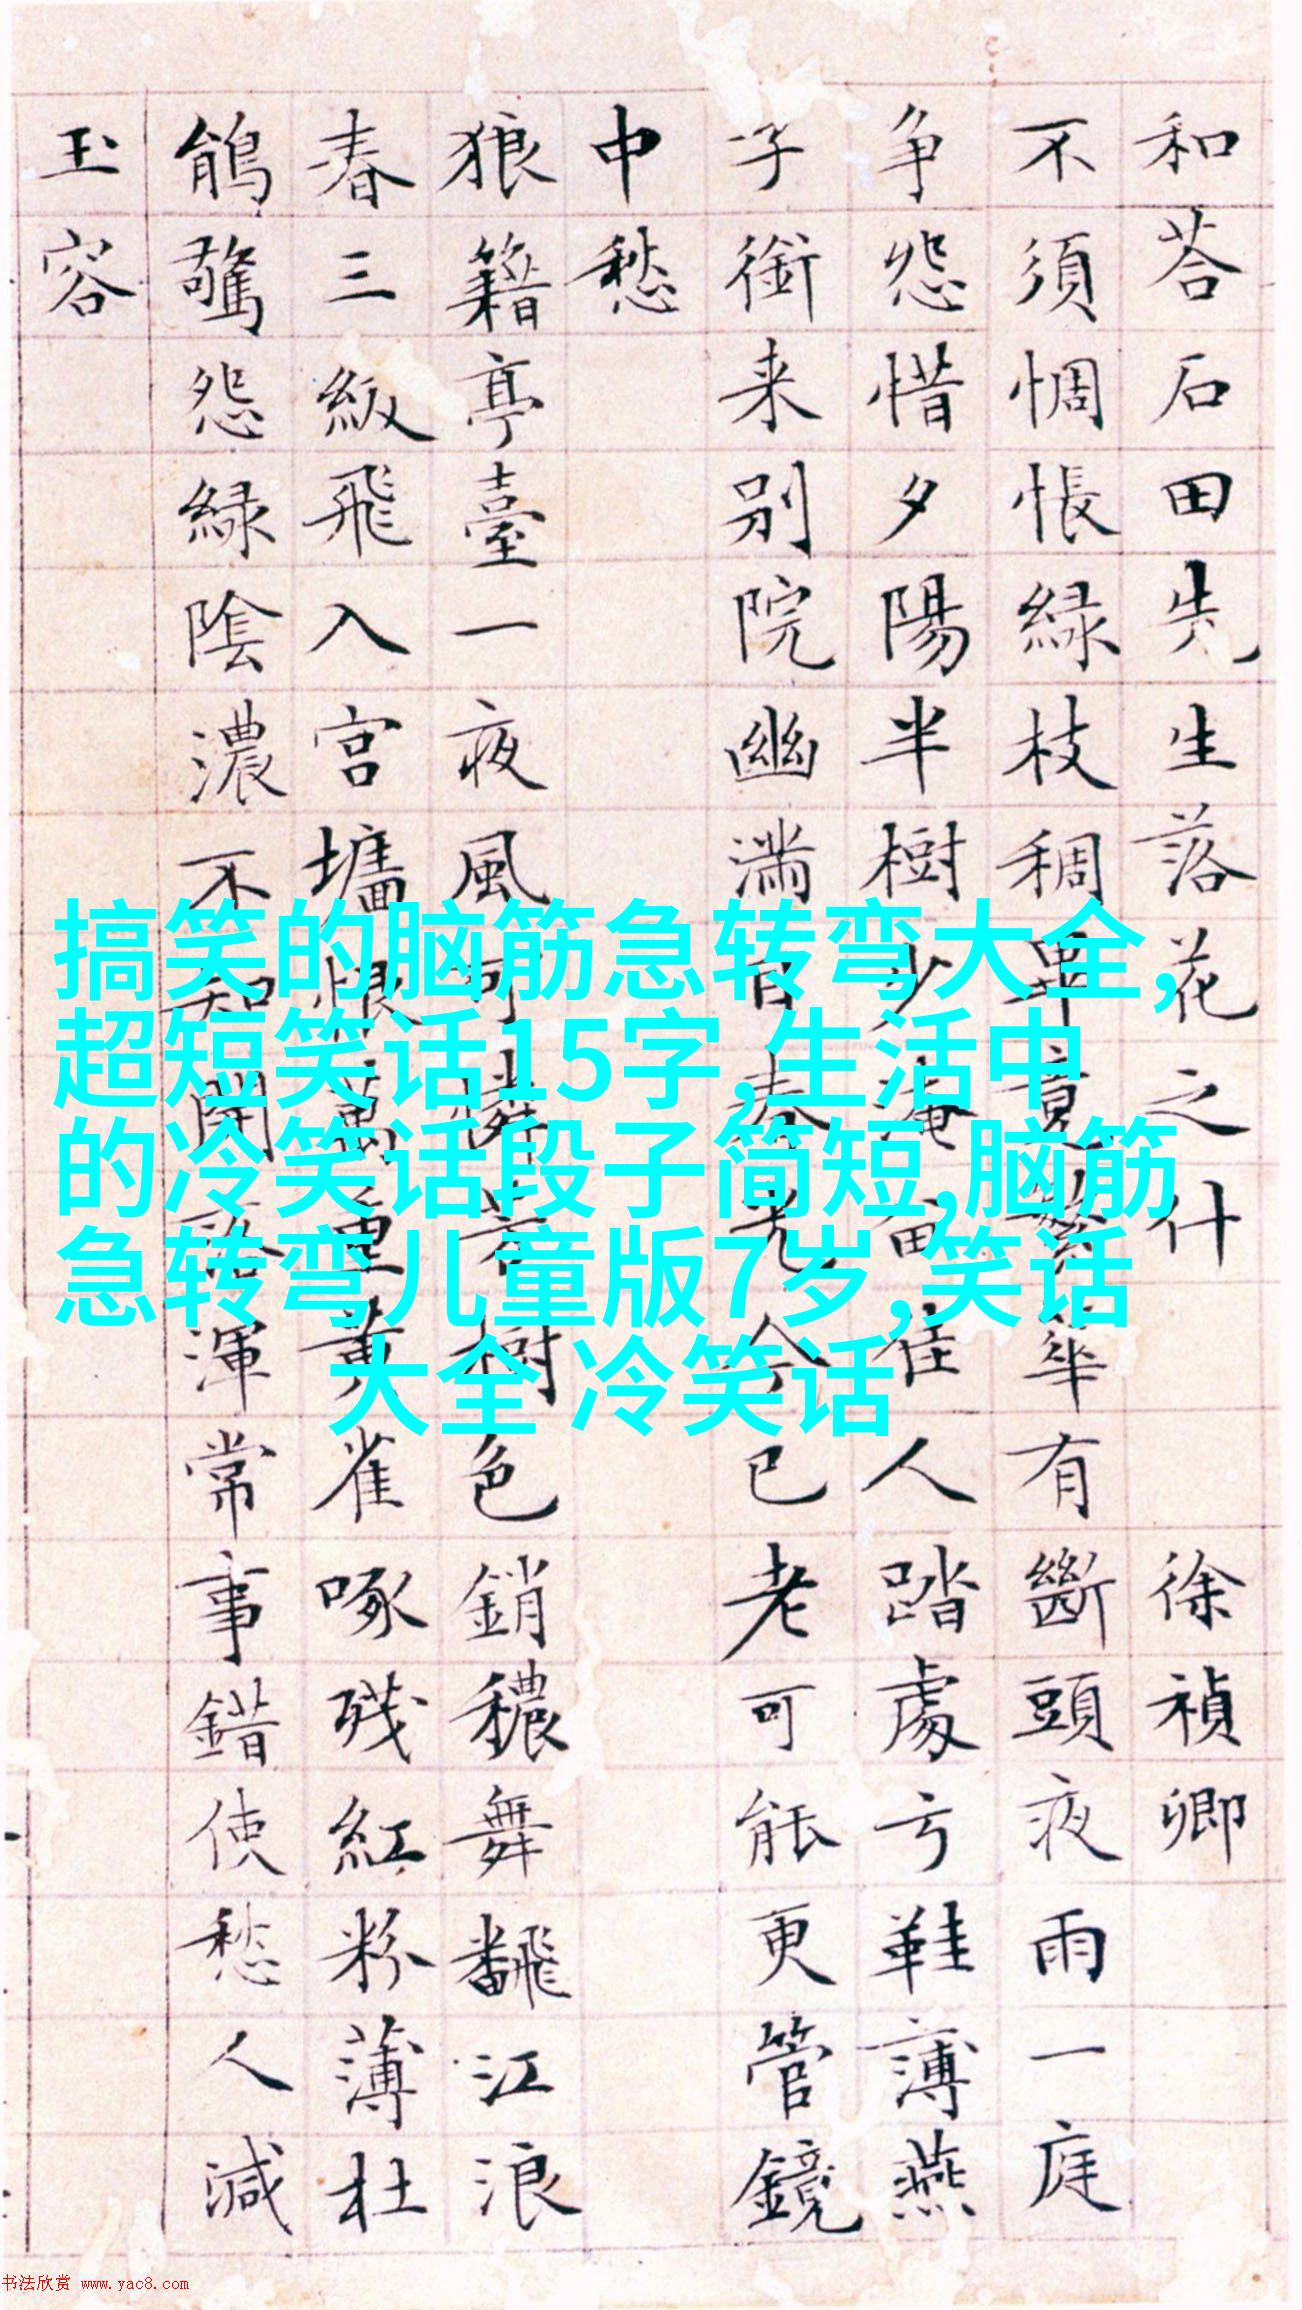 和荅石田先生落花之什 徐禎卿
不須惆悵綠枝稠畢竟繁華有斷頭夜雨一庭
争怨惜夕陽半樹少淹留佳人踏處弓鞋薄燕
子銜来别院幽滿目春光今已老可能更管鏡
中愁
狼籍亭臺一夜風可憐芳樹色銷穠舞飜江浪
春三級飛入宮墻恨萬重黄雀啄殘紅粉薄杜
鵑驚怨綠陰濃不知開落渾常事錯使愁人減
玉容
搞笑的脑筋急转弯大全,
超短笑话15字,生活中
的冷笑话段子简短,脑筋
急转弯儿童版7岁,笑话
大全 冷笑话
书法欣赏 www.yac8.com